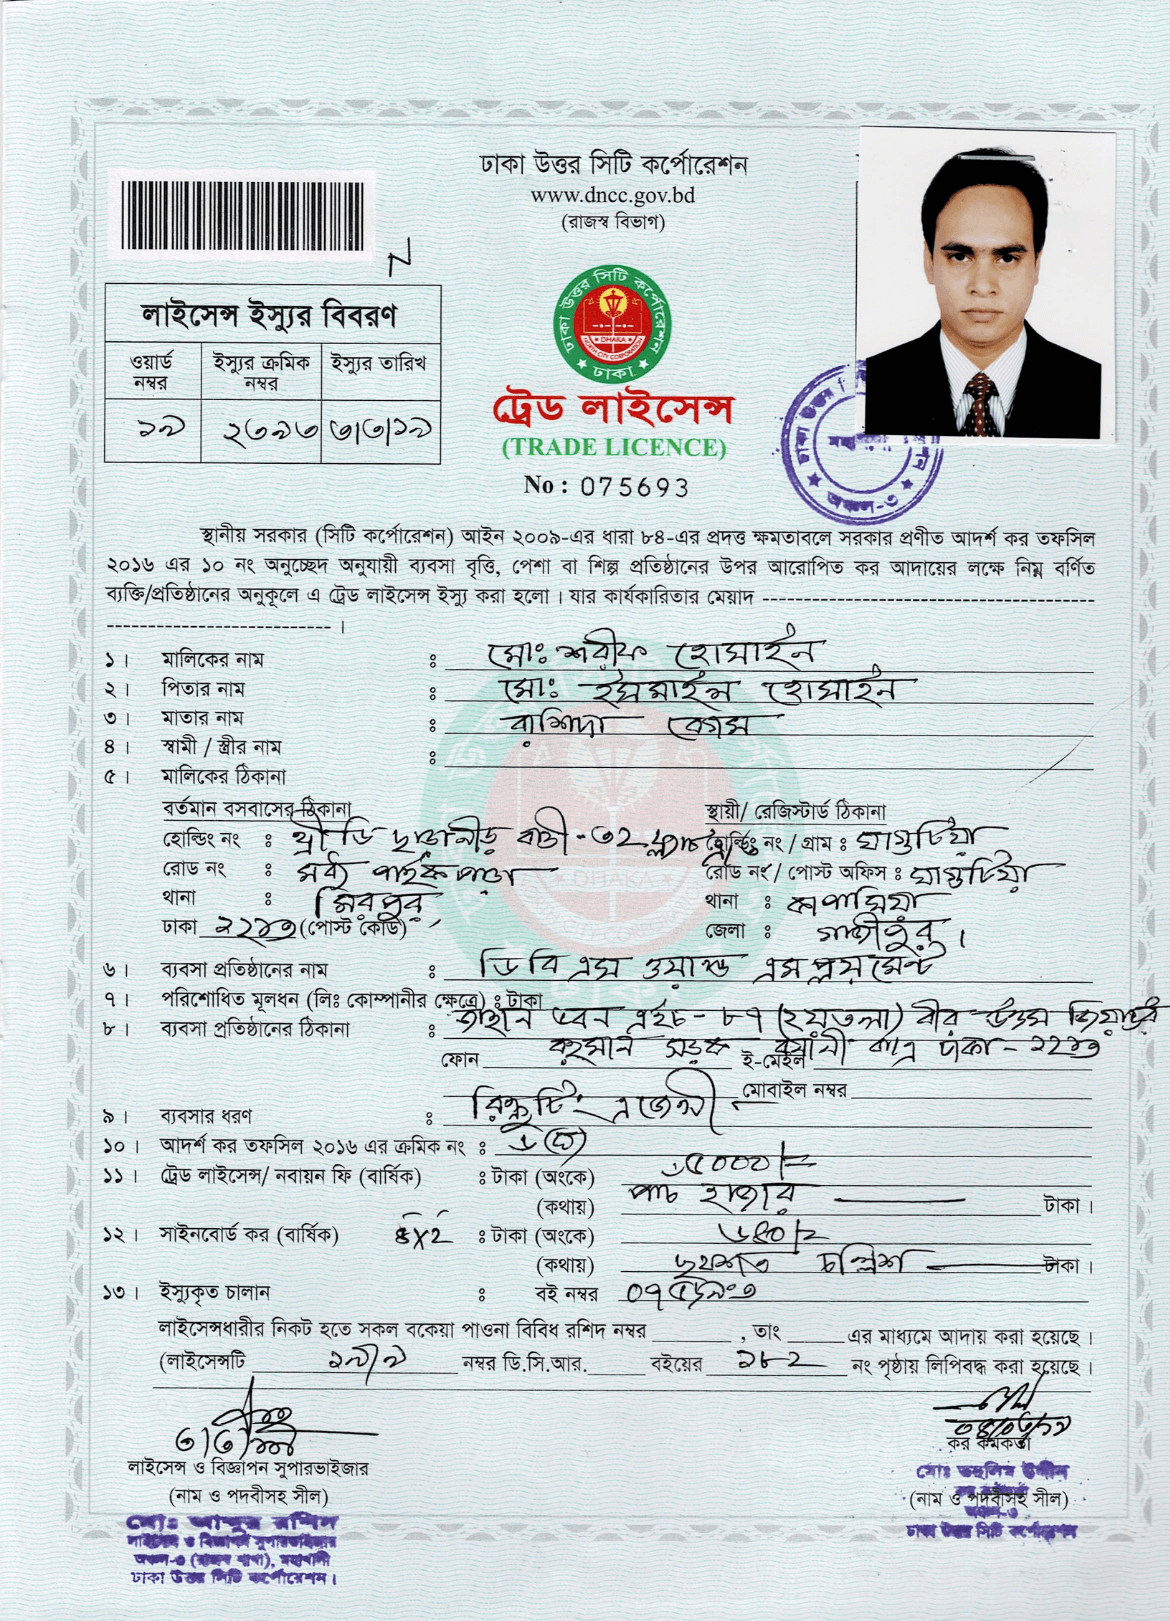 ঢাকা উত্তর সিটি কর্পোরেশন
www.dncc.gov.bd
(রাজস্ব বিভাগ)
N
লাইসেন্স ইস্যুর বিবরণ
ওয়ার্ড নম্বর
ইস্যুর ক্রমিক নম্বর
ইস্যুর তারিখ
১৯ ২৩৯৩ ৩/৩/১৯
ঢাকা উত্তর সিটি কর্পোরেশন
DHAKA
NORTH CITY CORPORATION
ঢাকা
ট্রেড লাইসেন্স
(TRADE LICENCE)
No : 075693
অঞ্চল-৩
স্থানীয় সরকার (সিটি কর্পোরেশন) আইন ২০০৯-এর ধারা ৮৪-এর প্রদত্ত ক্ষমতাবলে সরকার প্রণীত আদর্শ কর তফসিল
২০১৬ এর ১০ নং অনুচ্ছেদ অনুযায়ী ব্যবসা বৃত্তি, পেশা বা শিল্প প্রতিষ্ঠানের উপর আরোপিত কর আদায়ের লক্ষে নিম্ন বর্ণিত
ব্যক্তি/প্রতিষ্ঠানের অনুকূলে এ ট্রেড লাইসেন্স ইস্যু করা হলো । যার কার্যকারিতার মেয়াদ
১। মালিকের নাম : মোঃ শরীফ হোসাইন
২। পিতার নাম : মোঃ ইসমাইল হোসাইন
৩। মাতার নাম : রাশিদা বেগম
৪। স্বামী / স্ত্রীর নাম :
৫। মালিকের ঠিকানা
বর্তমান বসবাসের ঠিকানা
হোল্ডিং নং : থ্রী ডি ছায়ানীড় বাড়ী-৩২ ফ্ল্যাট
রোড নং : মধ্য পাইকপাড়া
থানা : মিরপুর,
ঢাকা ১২১৬ (পোস্ট কোড)
স্থায়ী/ রেজিস্টার্ড ঠিকানা
হোল্ডিং নং / গ্রাম : ঘাগুটিয়া
রোড নং / পোস্ট অফিস : ঘাগুটিয়া
থানা : কাপাসিয়া
জেলা : গাজীপুর ।
৬। ব্যবসা প্রতিষ্ঠানের নাম : ডি বি এস ওয়ার্ল্ড এমপ্লয়মেন্ট
৭। পরিশোধিত মূলধন (লিঃ কোম্পানীর ক্ষেত্রে) : টাকা
৮। ব্যবসা প্রতিষ্ঠানের ঠিকানা : ভবন এইচ-৮৭ (২য়তলা) বীর উত্তম জিয়াউর
রহমান সড়ক বনানী ঢাকা-১২১৩
ফোন ই-মেইল
মোবাইল নম্বর
৯। ব্যবসার ধরণ : রিক্রুটিং এজেন্সী
১০। আদর্শ কর তফসিল ২০১৬ এর ক্রমিক নং :
১১। ট্রেড লাইসেন্স/ নবায়ন ফি (বার্ষিক) : টাকা (অংকে) ৫০০০/=
(কথায়) পাচ হাজার টাকা ।
১২। সাইনবোর্ড কর (বার্ষিক) ৪X২ : টাকা (অংকে) ৬৪০/=
(কথায়) ছয়শত চল্লিশ টাকা ।
১৩। ইস্যুকৃত চালান : বই নম্বর
লাইসেন্সধারীর নিকট হতে সকল বকেয়া পাওনা বিবিধ রশিদ নম্বর , তাং এর মাধ্যমে আদায় করা হয়েছে ।
(লাইসেন্সটি নম্বর ডি.সি.আর. বইয়ের ১৮২ নং পৃষ্ঠায় লিপিবদ্ধ করা হয়েছে ।
লাইসেন্স ও বিজ্ঞাপন সুপারভাইজার
(নাম ও পদবীসহ সীল)
মোঃ আব্দুর রশিদ
লাইসেন্স ও বিজ্ঞাপন সুপারভাইজার
অঞ্চল-৩ (রাজস্ব শাখা), মহাখালী
ঢাকা উত্তর সিটি কর্পোরেশন ।
কর কর্মকর্তা
মোঃ তহুলিম উদ্দীন
(নাম ও পদবীসহ সীল)
অঞ্চল-৩
ঢাকা উত্তর সিটি কর্পোরেশন